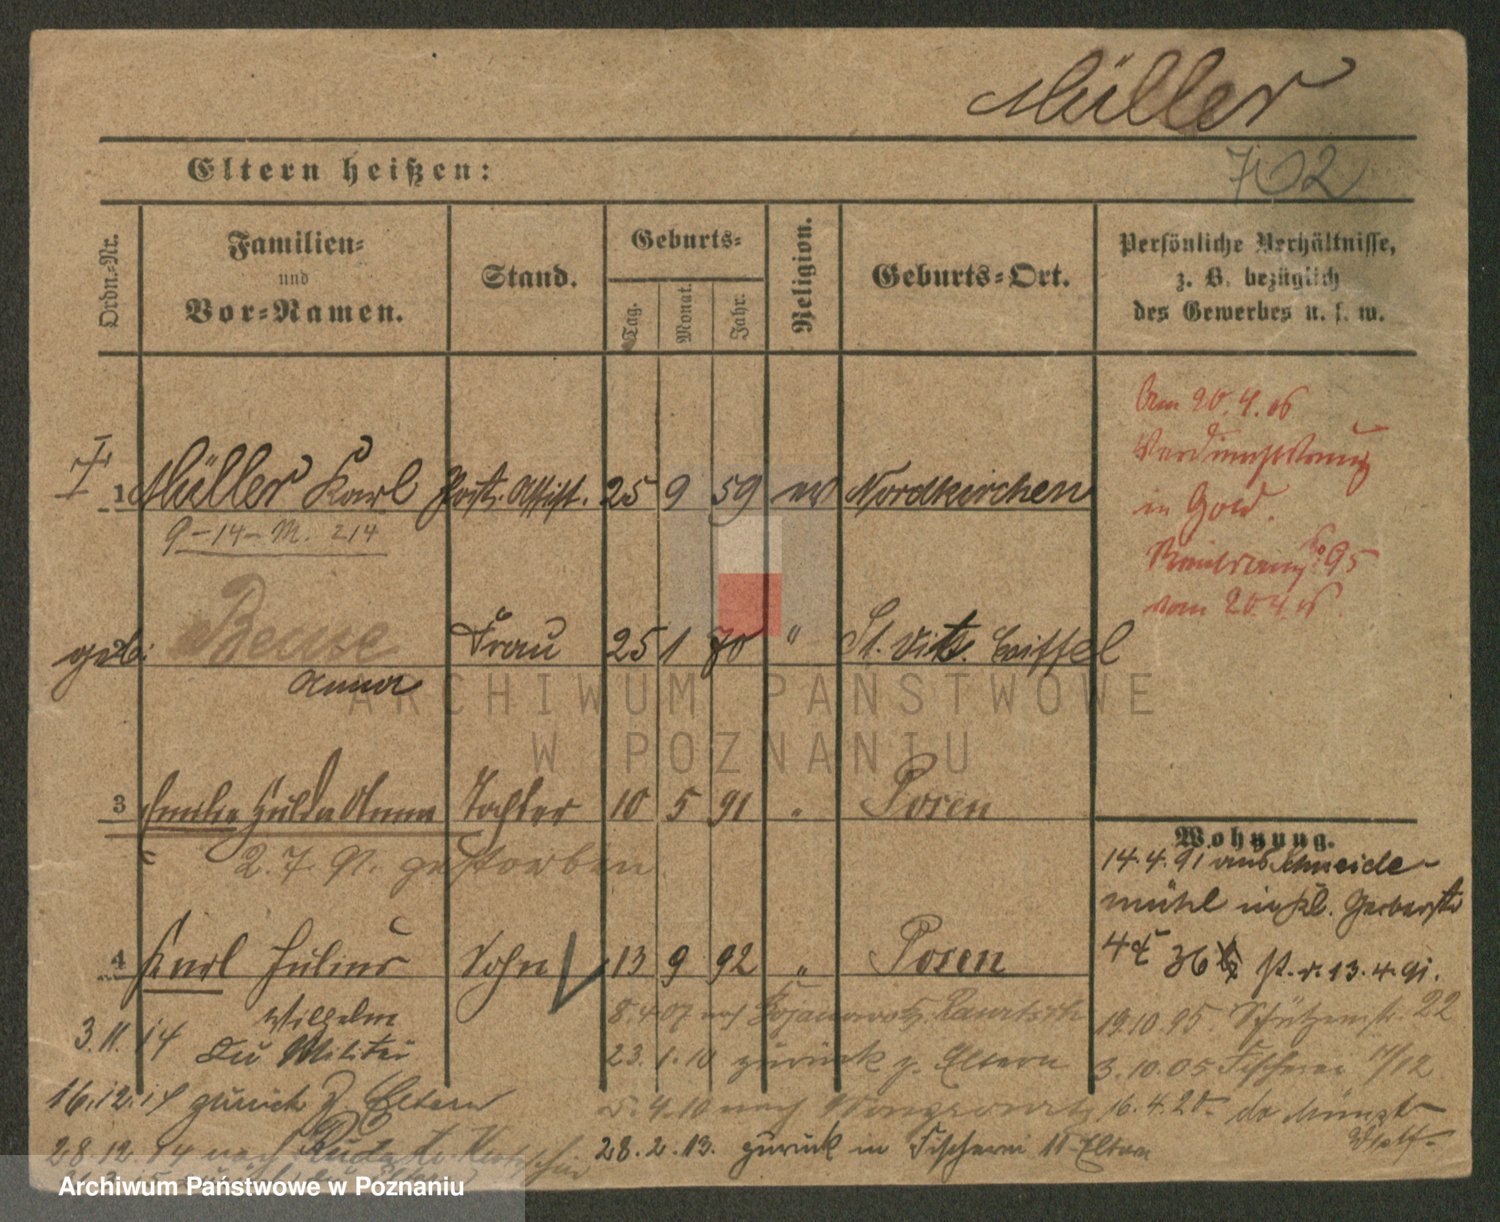 Müller
Eltern heißen:
702
Ordn.-Nr.
Familien-
und
Vor-Namen.
Stand.
Geburts-
Tag.
Monat.
Jahr.
Religion.
Geburts-Ort.
Persönliche Verhältnisse,
z. B. bezüglich
des Gewerbes u. s. w.
Am 20.4.06
in Gold.
95
vom 20 4 06
1 Müller Karl Post. Assist. 25 9 59 ev Nordkirchen
9-14-M. 214
geb: Beuse Frau 25 1 70 " St. Vith. Eiffel
Anna
3 Emilie Hulda Anna Tochter 10 5 91 " Posen
2.7.91. gestorben
Wohnung.
14.4.91 aus Schneide-
mühl Gerberstr
4 Karl Julius Sohn 13 9 92 " Posen
Wilhelm
36 13.4.91.
8.4.07 nach
19.10.95. Schützenstr. 22
3.11.14 Militär
23.1.10 zurück z. Eltern
3.10.05 Fischerei 11/12
16.12.14 zurück z. Eltern
5.4.10 nach Wongrowitz
16.4.20
28.12.14 nach
28.2.13. zurück in Fischerei 11 Eltern
ARCHIWUM PAŃSTWOWE
W POZNANIU
Archiwum Państwowe w Poznaniu